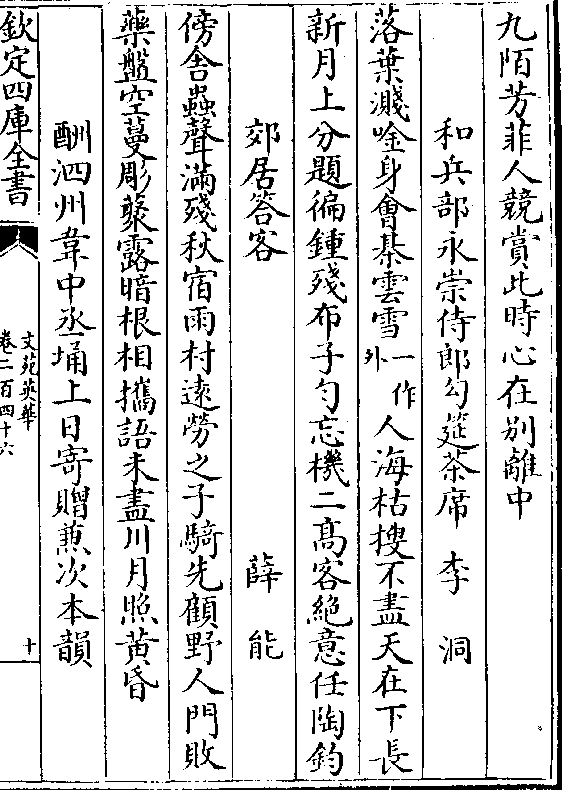 九陌芳菲人競賞此時心在别離中
和兵部永崇侍郎勾筵茶席 李洞
落葉濺吟身會棊雲雪一作外人海枯搜不盡天在下長
新月上分題徧鍾殘布子勻忘機二髙客絶意任陶鈞
郊居答客 薛能
傍舍蟲聲滿殘秋宿雨村遠勞之子騎先顧野人門敗
藥盤空蔓彫蔾露暗根相攜語未盡川月照黄昏
酬泗州韋中丞埇上日寄贈兼次本韻
欽定四庫全書
文苑英華
卷二百四十六
十